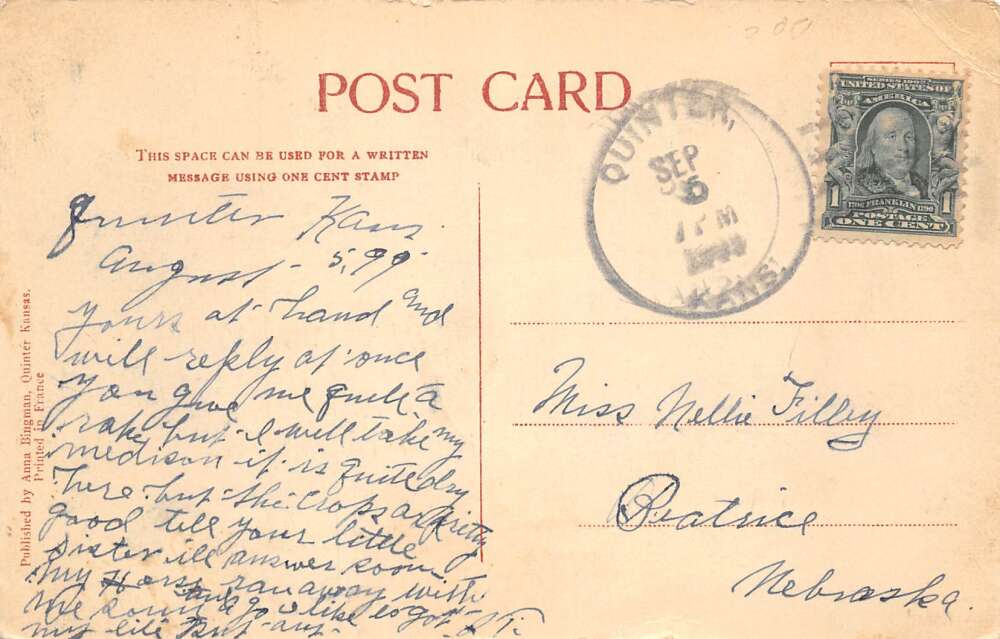 POST CARD
THIS SPACE CAN BE USED FOR A WRITTEN
MESSAGE USING ONE CENT STAMP
QUINTER,
SEP
KANS.
SERIES 1902
UNITED STATES OF
AMERICA
1 1
1706 FRANKLIN 1790
POSTAGE
ONE CENT
Quinter Kans.
August - 5, 09
Yours at hand and
will reply at once
you give me quite a
rake but I will take my
medison it is quite dry
here but the crops are pretty
good tell your little
Sister ill answer soon
my Horse ran away with
me
my but
Miss Nellie Filley
Beatrice
Nebraska.
Published by Anna Bingman, Quinter Kansas.
Printed in France